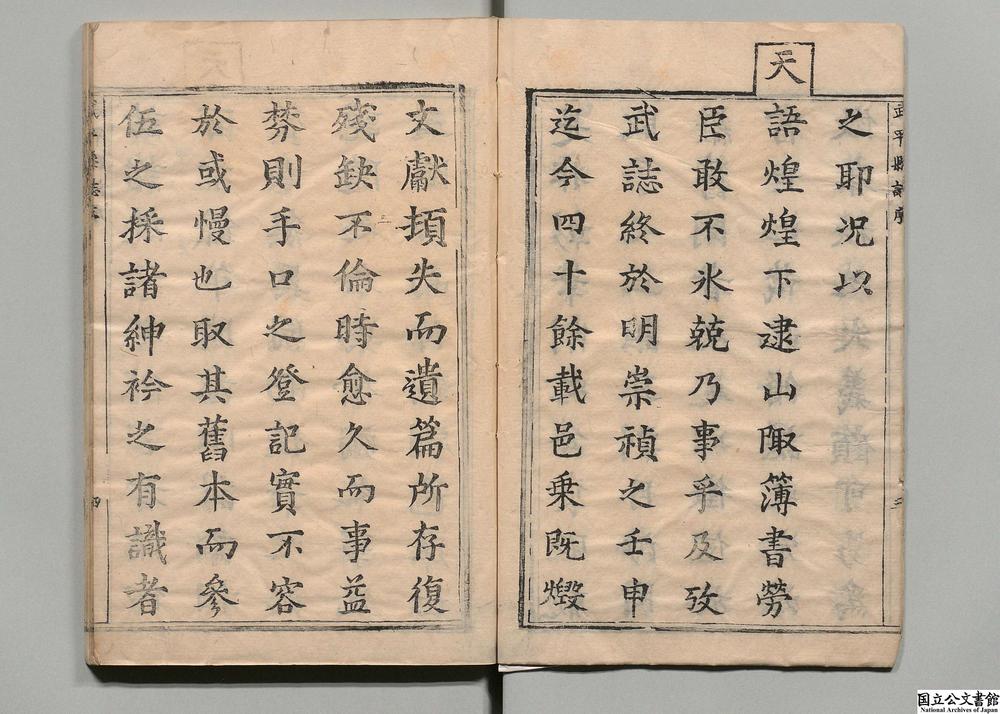 武平縣誌序
之耶况以
天
語煌煌下逮山陬簿書勞
臣敢不氷兢乃事乎及攷
武誌終於明崇禎之壬申
迄今四十餘載邑乗既燬
文獻頓失而遺篇所存復
殘缺不倫時愈久而事益
棼則手口之登記實不容
於或慢也取其舊本而參
伍之採諸紳衿之有識者
四
国立公文書館
National Archives of Japan